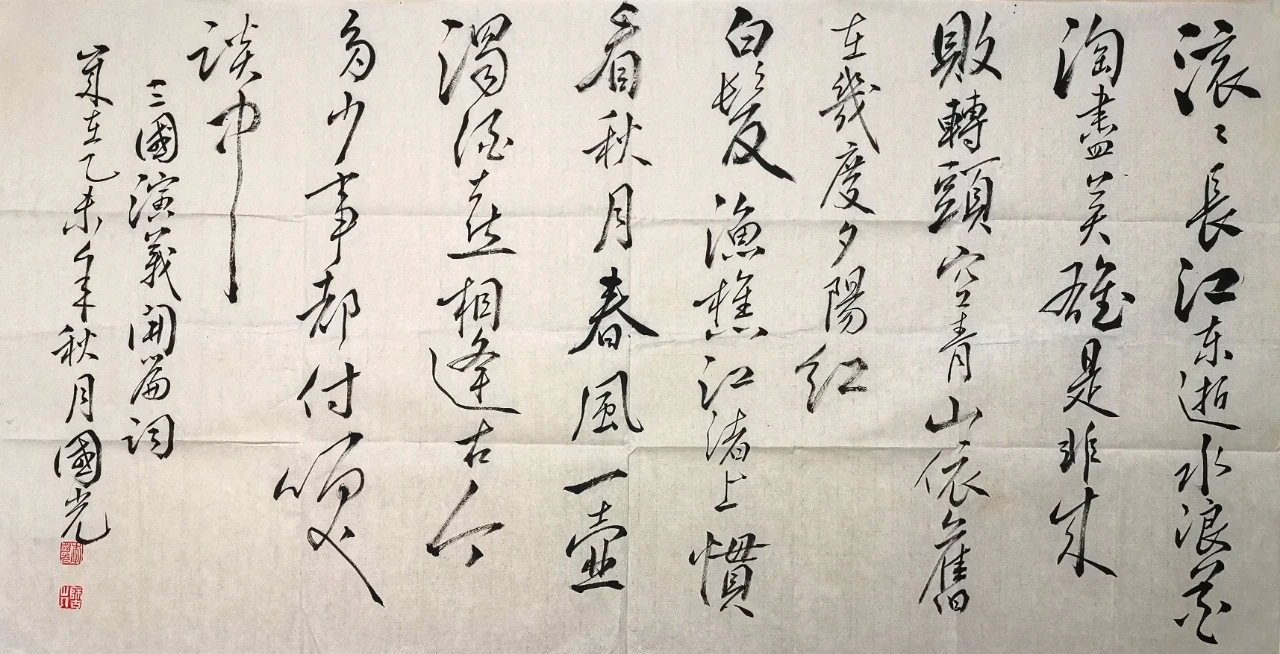 滚〻長江东逝水浪花
淘盡英雄是非成
敗轉頭空青山依舊
在幾度夕陽红
白髮漁樵江渚上慣
看秋月春風一壶
濁酒喜相逢古今
多少事都付笑
談中
三國演義開篇词
歲在乙未年秋月國光